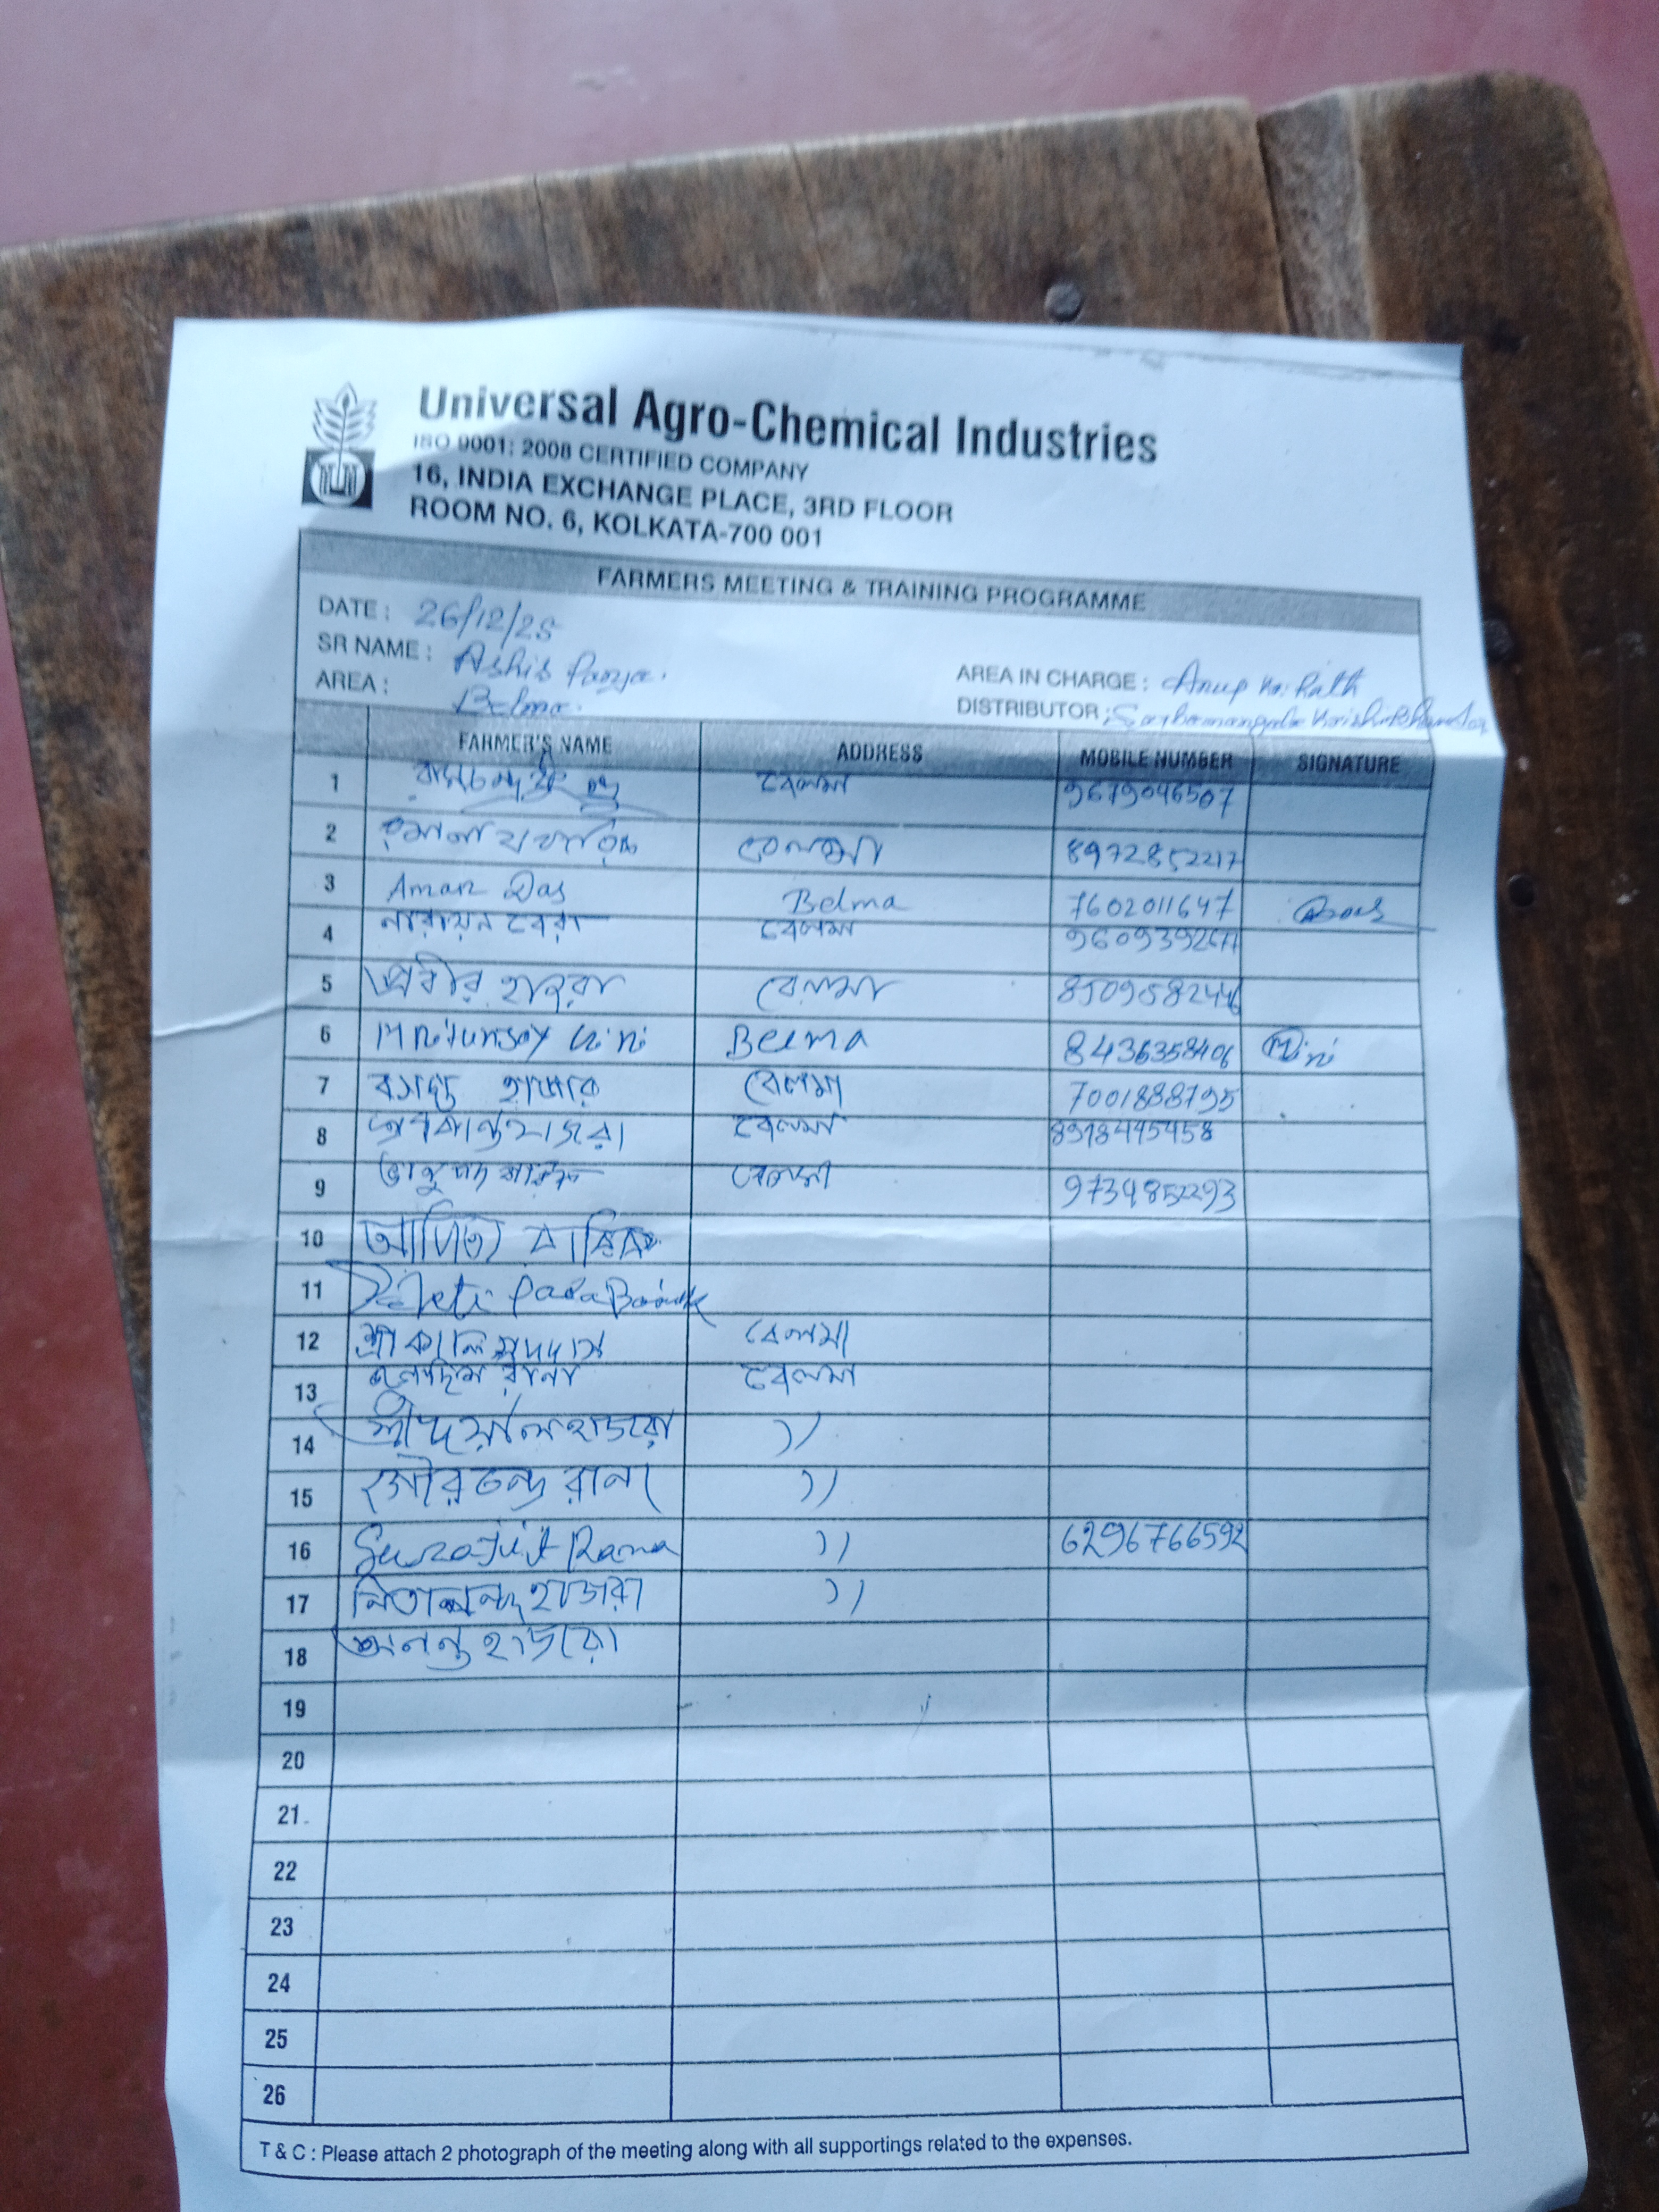 Universal Agro-Chemical Industries
ISO 9001: 2008 CERTIFIED COMPANY
16, INDIA EXCHANGE PLACE, 3RD FLOOR
ROOM NO. 6, KOLKATA-700 001
FARMERS MEETING & TRAINING PROGRAMME
DATE : 26/12/25
SR NAME : Ashis
AREA IN CHARGE : Anup Kr. Rath
AREA : Belma.
DISTRIBUTOR :
FARMER'S NAME ADDRESS MOBILE NUMBER SIGNATURE
1 বেলমা 9679046507
2 বেলমা 8972852217
3 Aman Das Belma 7602011647
4 নারায়ন বেরা বেলমা
5 প্রবীর হাজরা বেলমা
6 Belma 8436358406
7 বেলমা 7001888795
8 হাজরা বেলমা
9 বেলমা 9734852293
10 বারিক
11
12 শ্রী কালিপদ দাস বেলমা
13 রানা বেলমা
14 শ্রী দয়াল হাজরা ))
15 গৌর চন্দ্র রানা ))
16 Surajit Rana )) 6296766592
17 নিত্যানন্দ হাজরা ))
18 অনন্ত হাজরা
19
20
21
22
23
24
25
26
T & C : Please attach 2 photograph of the meeting along with all supportings related to the expenses.